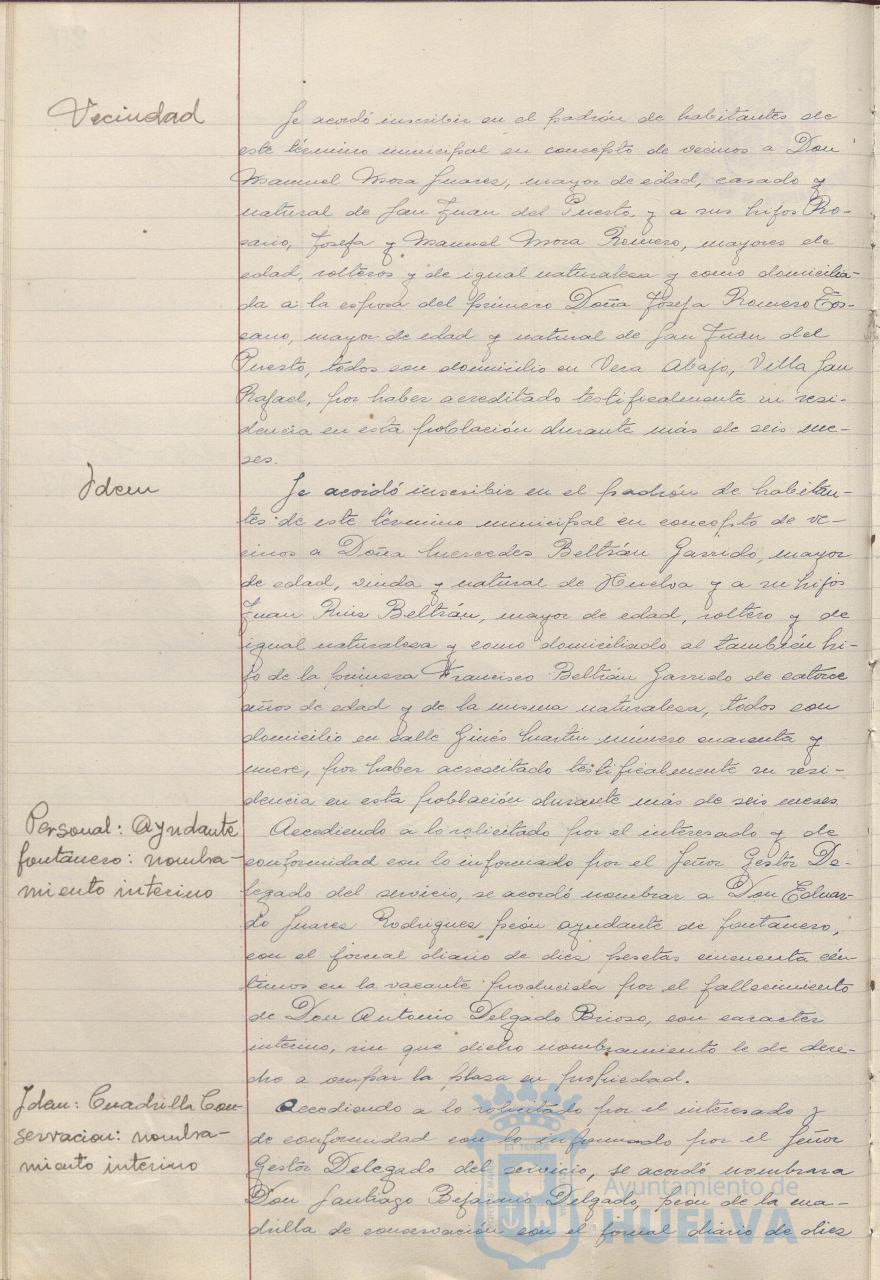 Vecindad
Se acordó inscribir en el padrón de habitantes de
este término municipal en concepto de vecinos a Don
Manuel Mora Juares, mayor de edad, casado y
natural de San Juan del Puerto y a sus hijos Ro-
sario, Josefa y Manuel Mora Romero, mayores de
edad, solteros y de igual naturalesa y como domicilia-
da a la esposa del primero Doña Josefa Romero Tos-
cano, mayor de edad y natural de San Juan del
Puerto, todos con domicilio en Vera Abajo, Villa San
Rafael, por haber acreditado testificalmente su resi-
dencia en esta población durante más de seis me-
ses.
Idem
Se acordó inscribir en el padrón de habitan-
tes de este término municipal en concepto de ve-
cinos a Doña Mercedes Beltrán Garrido, mayor
de edad, viuda y natural de Huelva y a su hijos
Juan Ruis Beltrán, mayor de edad, soltero y de
igual naturalesa y como domiciliado al también hi-
jo de la primera Francisco Beltrán Garrido de catorce
años de edad y de la misma naturalesa, todos con
domicilio en calle Ginés Martin número cuarenta y
nueve, por haber acreditado testificalmente su resi-
dencia en esta población durante más de seis meses.
Personal: Ayudante
fontanero: nombra-
miento interino
Accediendo a lo solicitado por el interesado y de
conformidad con lo informado por el Señor Gestor De-
legado del servicio, se acordó nombrar a Don Eduar-
do Juares Rodrigues peón ayudante de fontanero,
con el jornal diario de dies pesetas cincuenta cén-
timos en la vacante producida por el fallecimiento
de Don Antonio Delgado Brioso, con caracter
interino, sin que dicho nombramiento le de dere-
cho a ocupar la plasa en propiedad.
Idem: Cuadrilla Con-
servacion: nombra-
miento interino
Accediendo a lo solicitado por el interesado y
de conformidad con lo informado por el Señor
Gestor Delegado del servicio, se acordó nombrar a
Don Santiago Bejarano Delgado, peón de la cua-
drilla de conservación con el jornal diario de dies
Ayuntamiento de
HUELVA